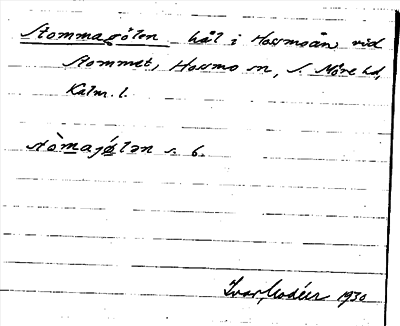 Stommagölen hål i Hossmoån vid
Stommet, Hossmo sn, S. Möre hd,
Kalm. l.
stòmajǿlən s. 6.
Ivar Modéer 1930